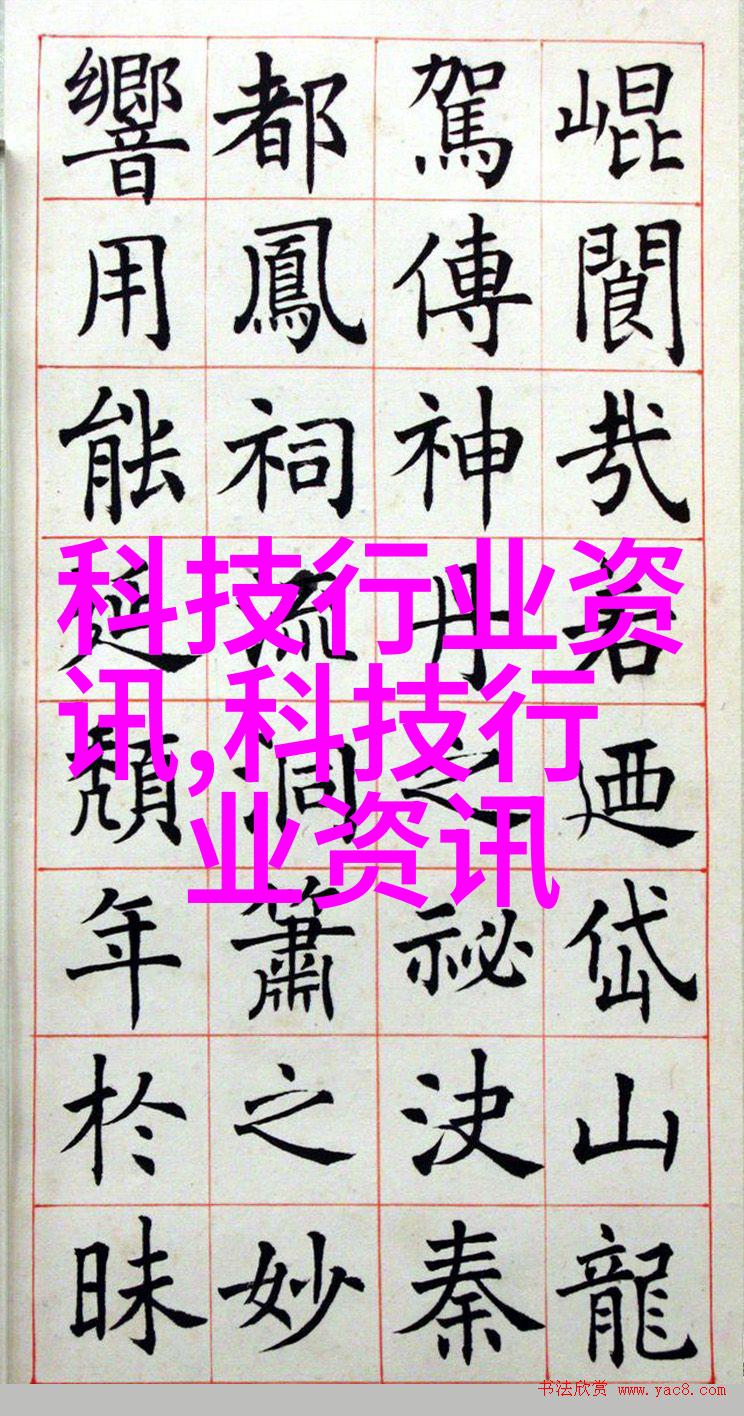 崐閬哉若迺岱山龍
駕傳神丹之祕決秦
都鳳祠流洞簫之妙
響用能延頹年於昧
科技行业资
讯,科技行
业资讯
书法欣赏 www.yac8.com